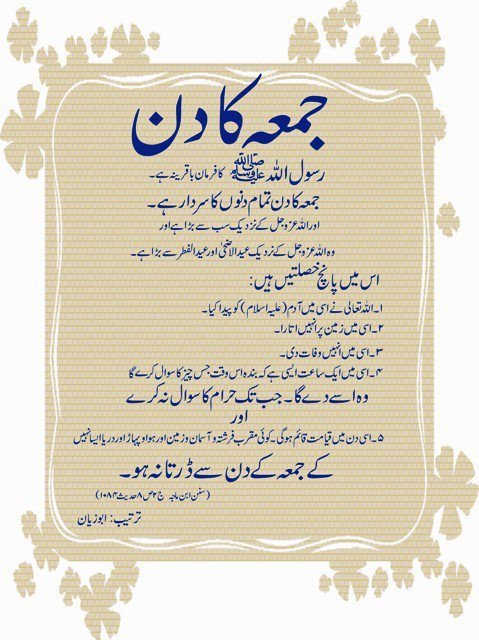 جمعہ کا دن
رسول اللہ ﷺ کا فرمان باقرینہ ہے۔
جمعہ کا دن تمام دنوں کا سردار ہے۔
اور اللہ عزوجل کے نزدیک سب سے بڑا ہے اور
وہ اللہ عزوجل کے نزدیک عیدالاضحیٰ اور عیدالفطر سے بڑا ہے۔
اس میں پانچ خصلتیں ہیں:
۱۔ اللہ تعالی نے اسی میں آدم (علیہ اسلام) کو پیدا کیا۔
۲۔ اسی میں زمین پر انہیں اتارا۔
۳۔ اسی میں انہیں وفات دی۔
۴۔ اسی میں ایک ساعت ایسی ہے کہ بندہ اس وقت جس چیز کا سوال کرے گا
وہ اسے دے گا۔ جب تک حرام کا سوال نہ کرے
اور
۵۔ اسی دن میں قیامت قائم ہوگی۔ کوئی مقرب فرشتہ و آسمان و زمین اور ہوا و پہاڑ اور دریا ایسا نہیں
کے جمعہ کے دن سے ڈرتا نہ ہو۔
(سنن ابن ماجہ ج۲ ص۸ حدیث ۱۰۸۴)
ترتیب: ابوزیان